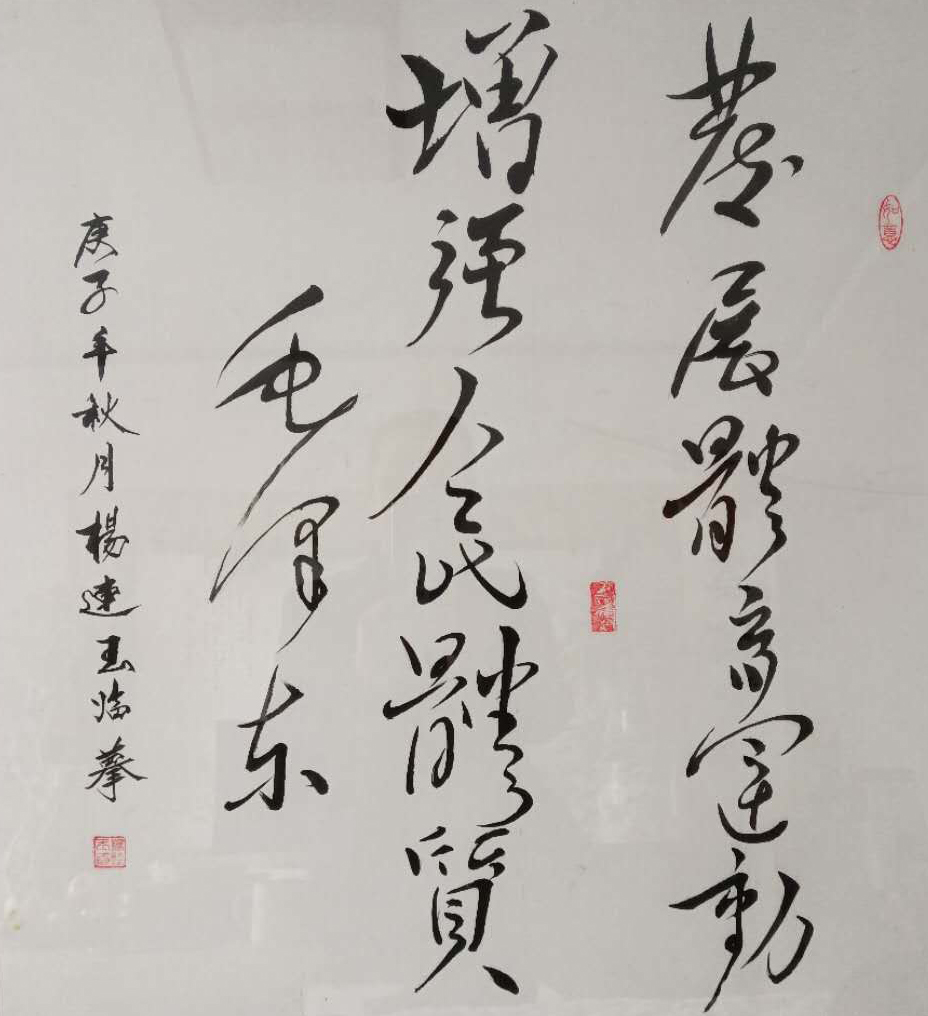 發展體育運動
增强人民體質
毛泽东
庚子年秋月楊連玉临摹
如意